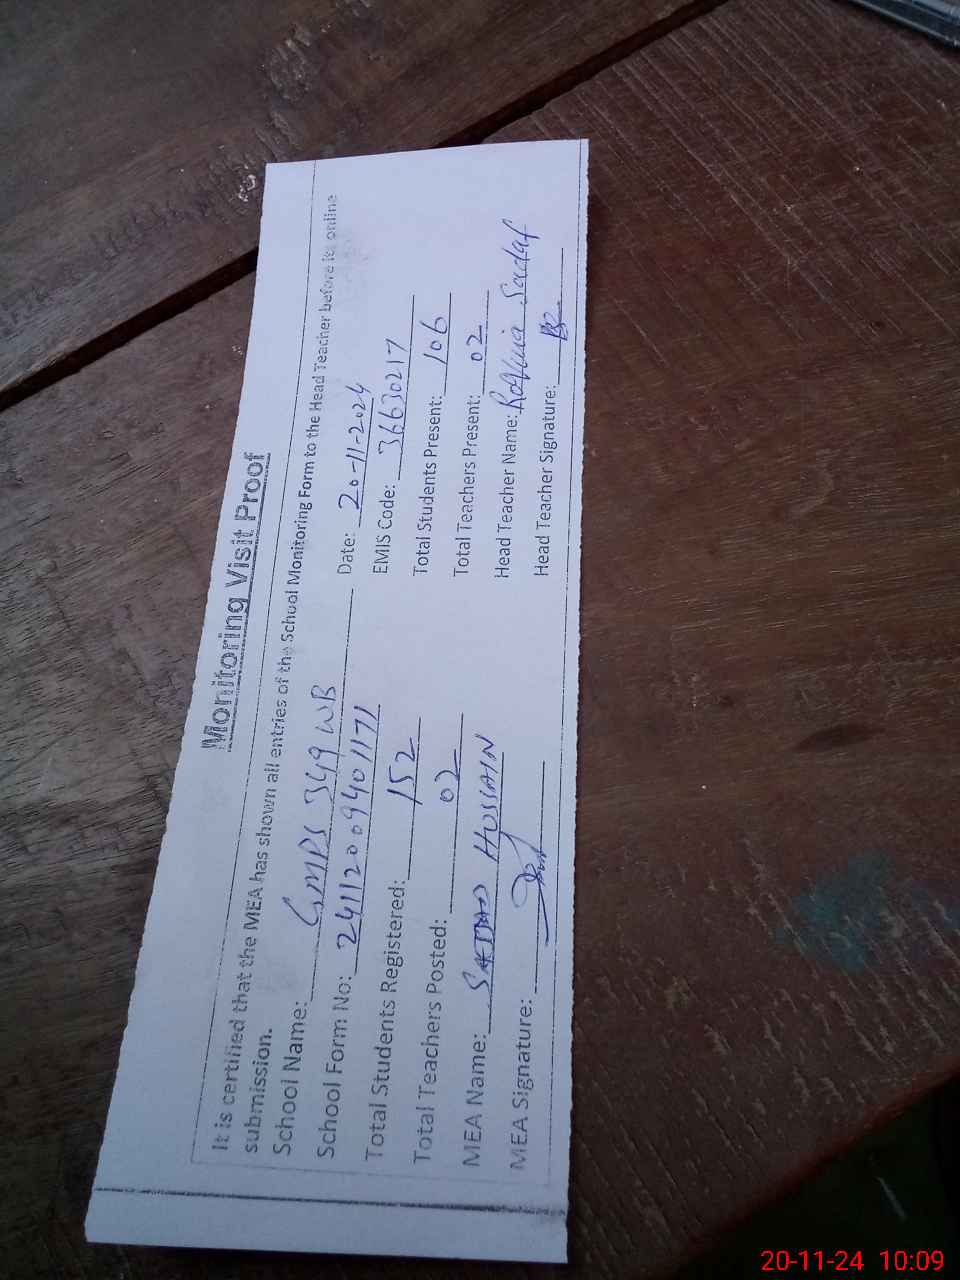 Monitoring Visit Proof
It is certified that the MEA has shown all entries of the School Monitoring Form to the Head Teacher before its online
submission.
School Name: GMPS 349 WB Date: 20-11-2024
School Form No: 24112009401171 EMIS Code: 36630217
Total Students Registered: 152 Total Students Present: 106
Total Teachers Posted: 02 Total Teachers Present: 02
MEA Name: SAJJAD HUSSAIN Head Teacher Name: Sadaf
MEA Signature: Head Teacher Signature:
20-11-24 10:09